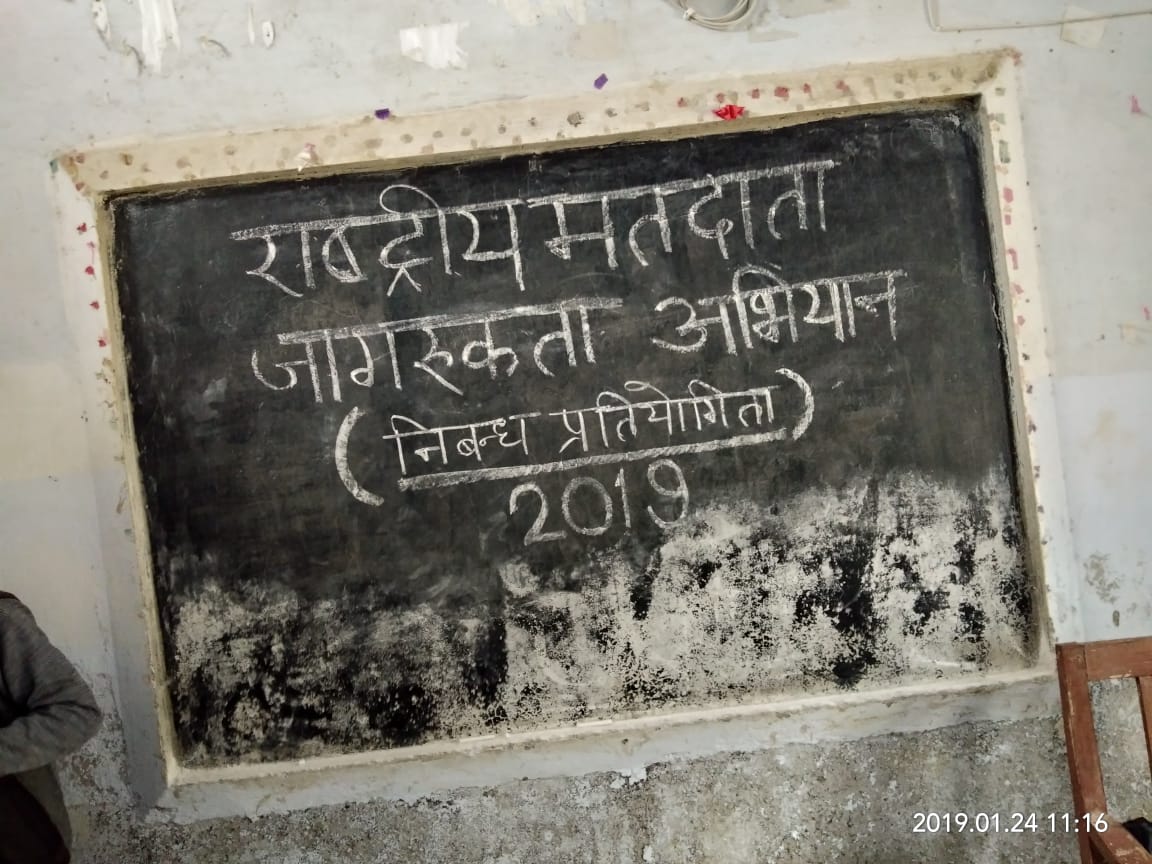 राष्ट्रीय मतदाता
जागरुकता अभियान
(निबन्ध प्रतियोगिता)
2019
2019.01.24 11:16